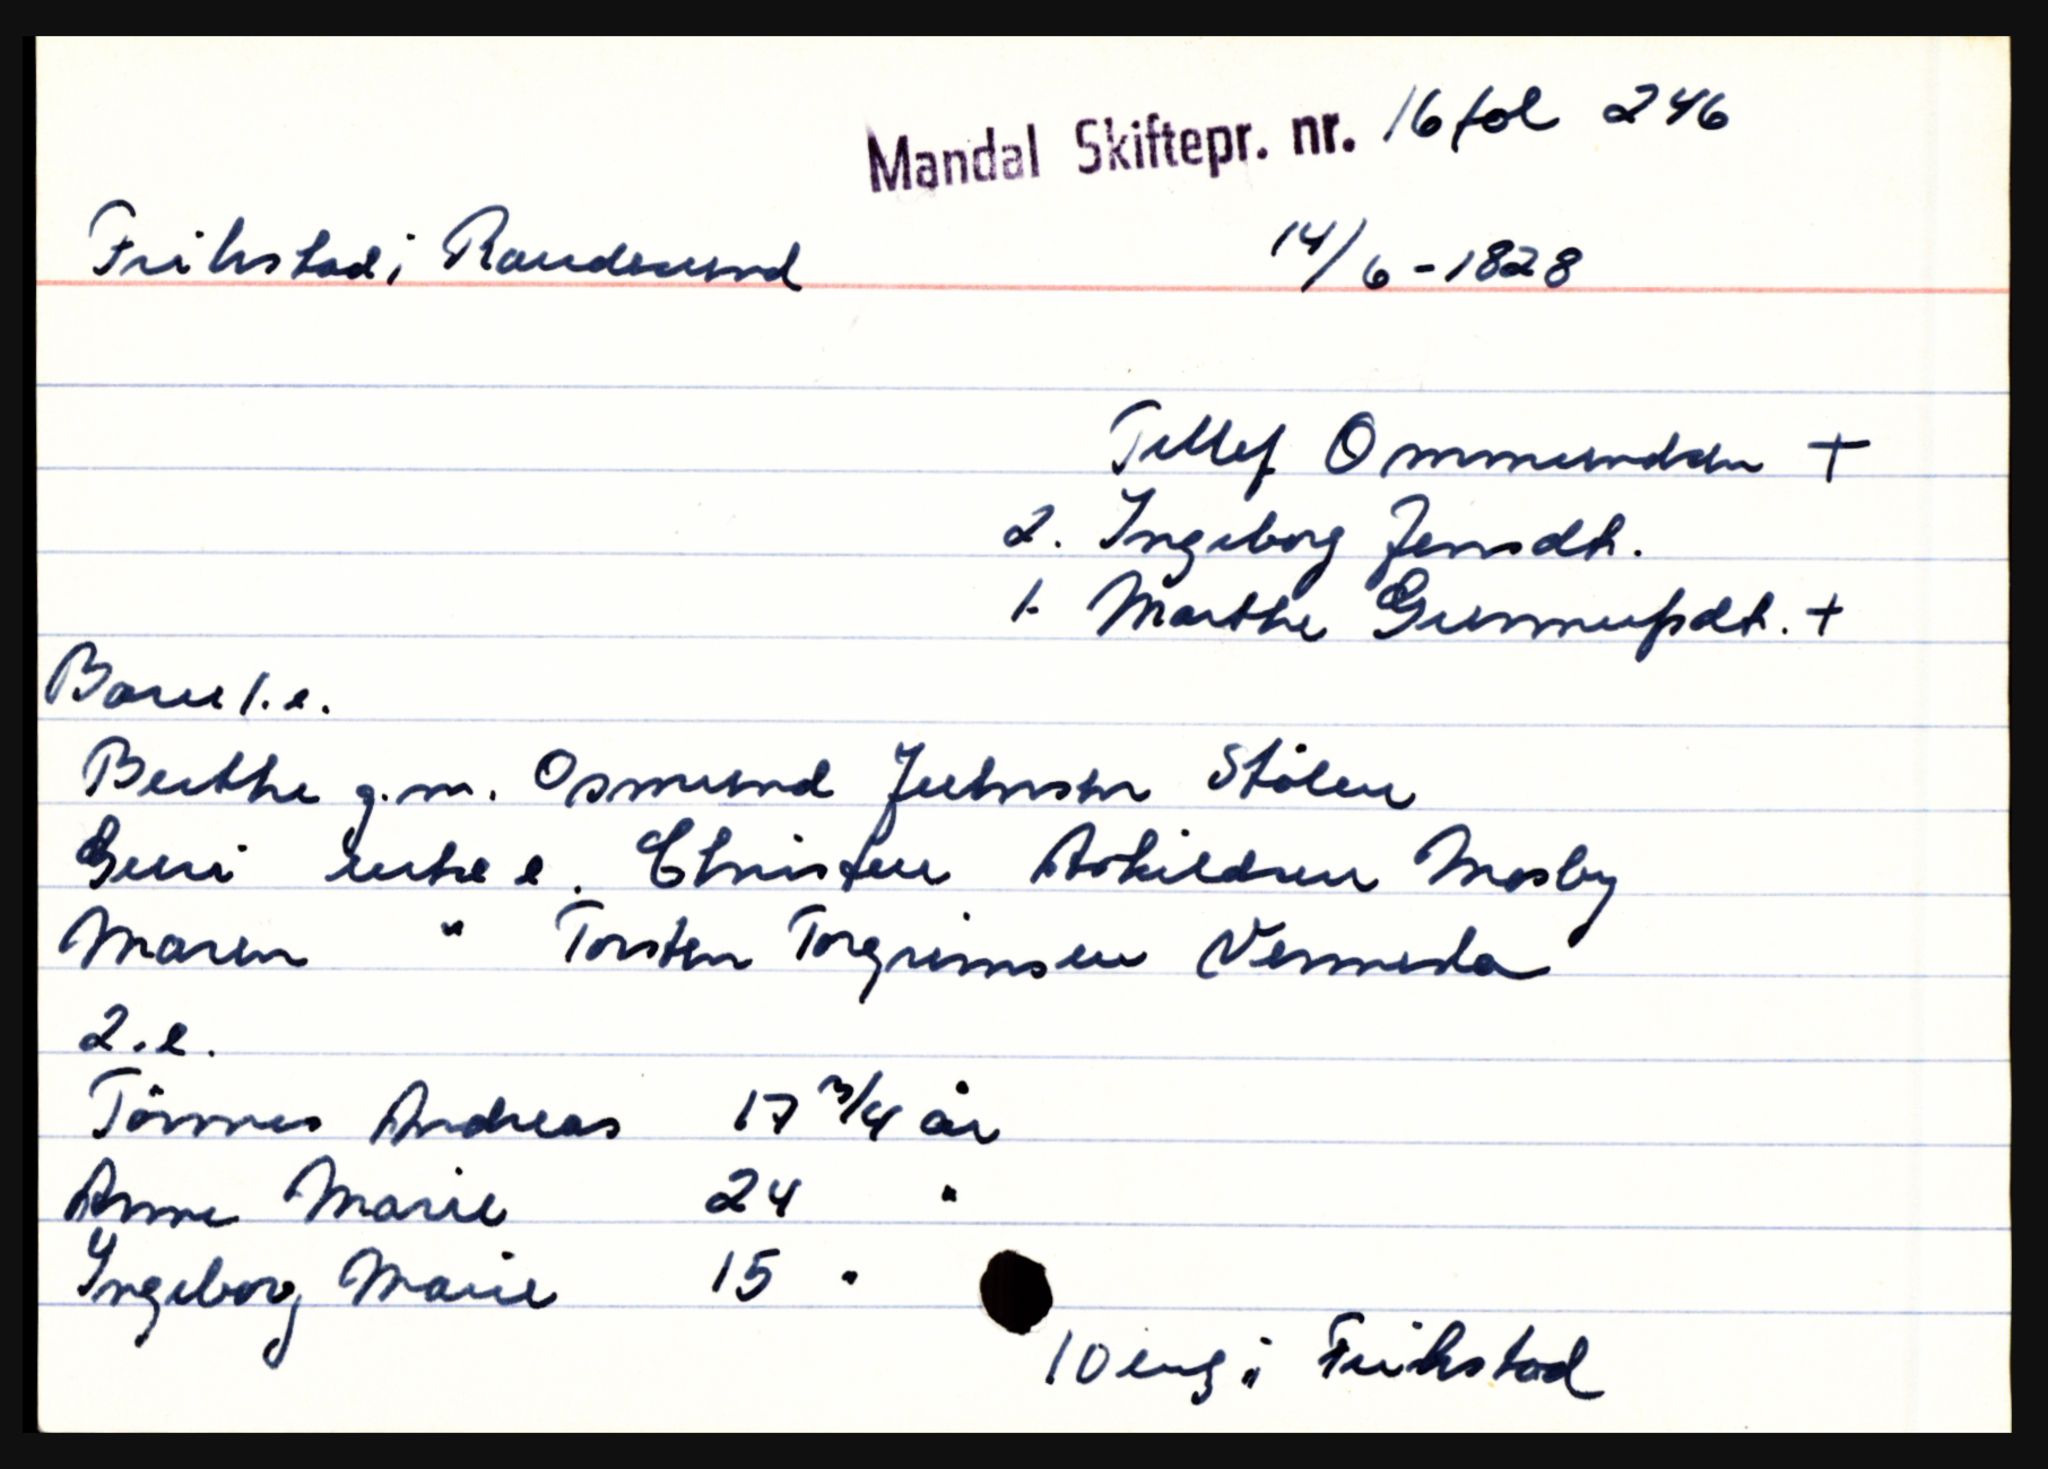 Mandal Skiftepr. nr. 16 fol 246
Frikstad i Randesund 14/6-1828
Tellef Ommundsen +
2. Ingeborg Jensdt.
1. Marthe Gunnufsdt. +
Barn 1. e.
Berthe g.m. Osmund Julnsen Stålen
Guri enke e. Christen Askildsen Mosby
Maren " Torsten Torgrimsen Vennesla
2. e.
Tönnes Andreas 17 3/4 år
Anne Marie 24 "
Ingeborg Marie 15 "
10 eng i Frikstad